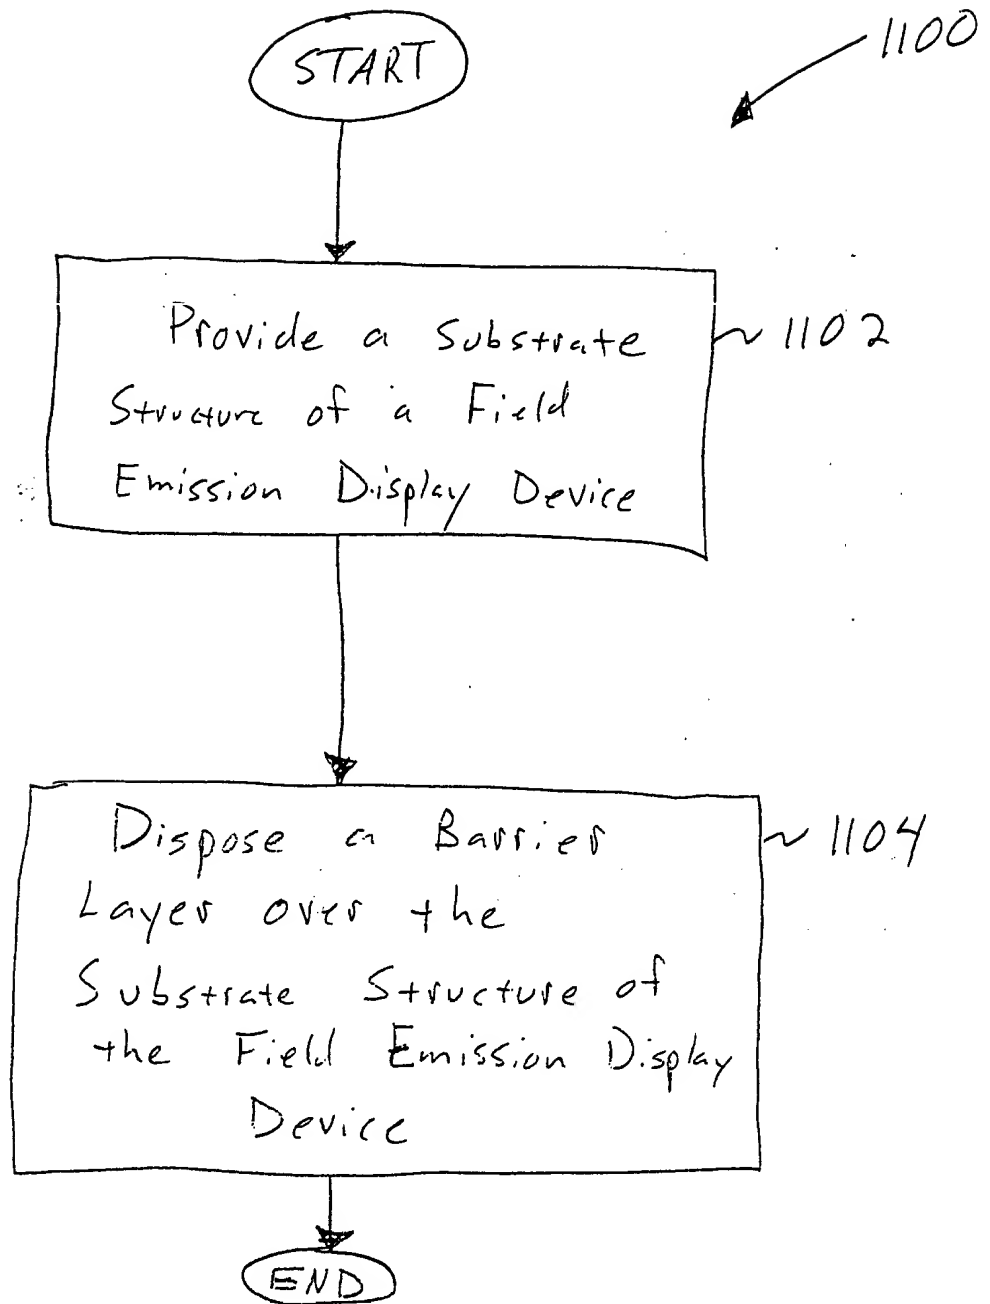 START
1100
Provide a Substrate
Structure of a Field
Emission Display Device
~ 1102
Dispose a Barrier
Layer over the
Substrate Structure of
the Field Emission Display
Device
~ 1104
END